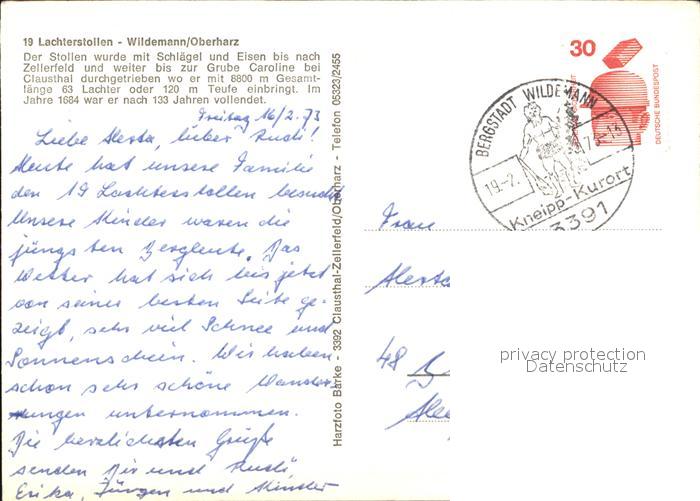 19 Lachterstollen - Wildemann/Oberharz
Der Stollen wurde mit Schlägel und Eisen bis nach
Zellerfeld und weiter bis zur Grube Caroline bei
Clausthal durchgetrieben wo er mit 8800 m Gesamt-
länge 63 Lachter oder 120 m Teufe einbringt. Im
Jahre 1684 war er nach 133 Jahren vollendet.
Freitag 16/2.73
Liebe Herta, lieber Rudi!
Heute hat unsere Familie
den 19 Lachterstollen besucht
Unsere Kinder waren die
jüngsten Bergleute. Das
Wetter hat sich bis jetzt
von seiner besten Seite ge-
zeigt, sehr viel Schnee und
Sonnenschein. Wir haben
schon sehr schöne Wander-
ungen unternommen.
Die herzlichsten Grüße
senden Dir und Rudi
Erika, Jürgen und Kinder
Harzfoto Barke - 3392 Clausthal-Zellerfeld/Oberharz - Telefon 05323/2455
30
DEUTSCHE BUNDESPOST
BERGSTADT WILDEMANN
19.-2.
73-13
Kneipp-Kurort
3391
Frau
Herta
48
privacy protection
Datenschutz